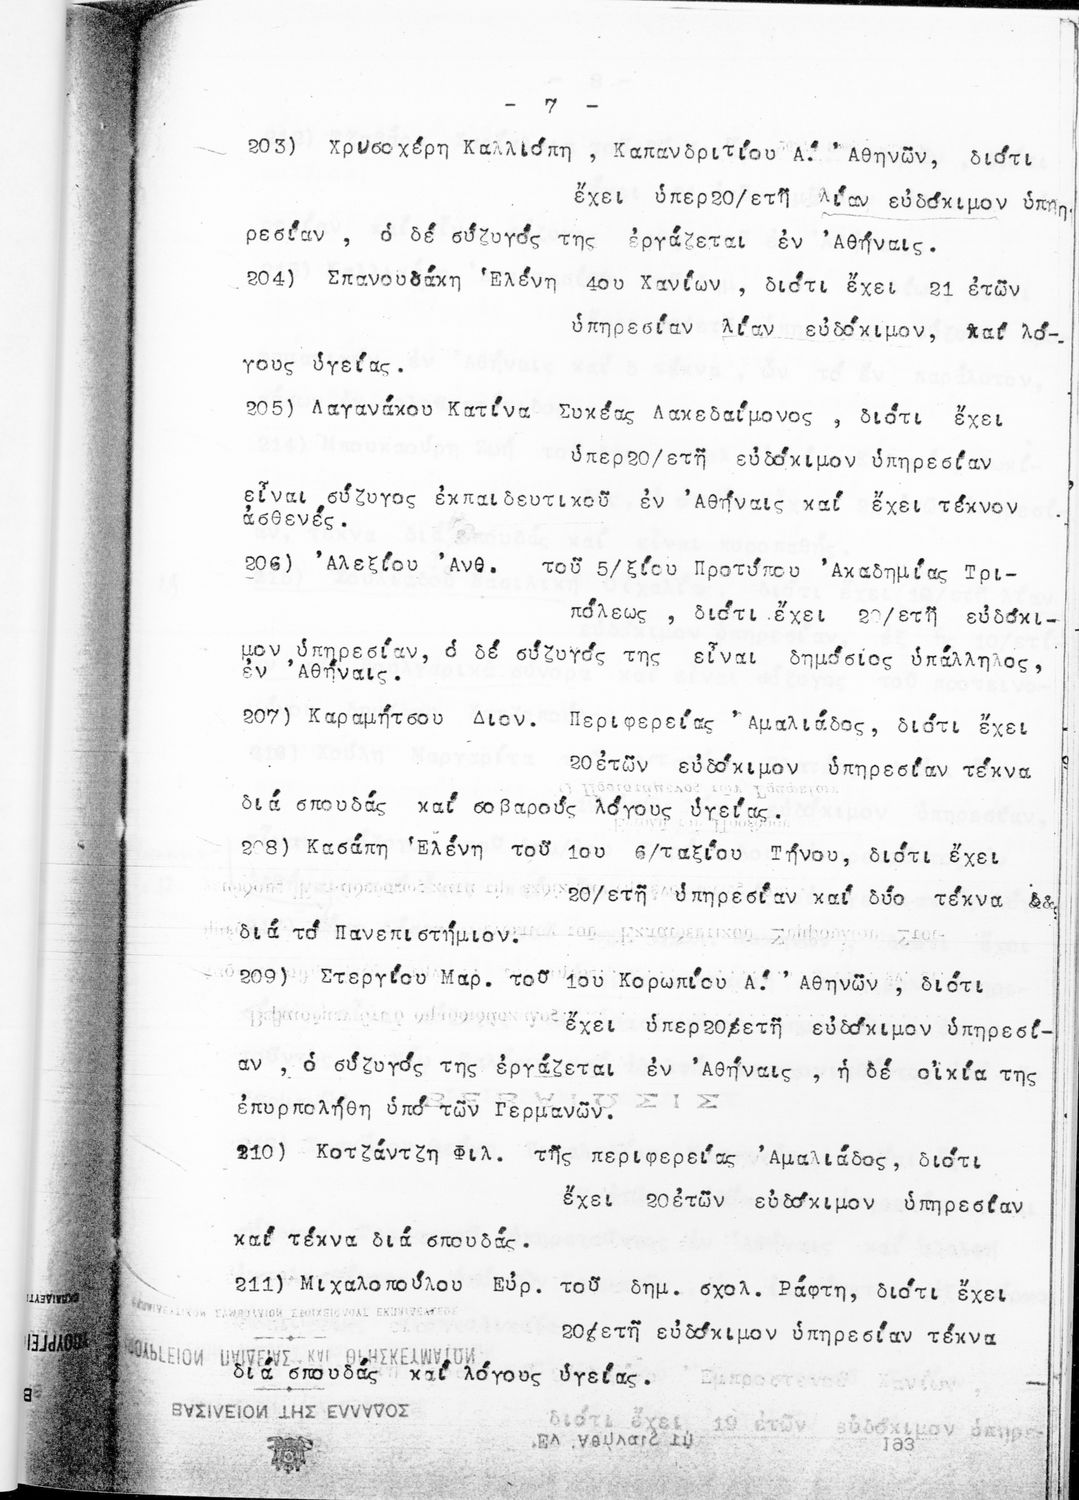 - 7 -
203) Χρυσοχέρη Καλλιόπη , Καπανδριτίου Α.' 'Αθηνῶν, διότι
ἔχει ὑπερ20/ετῆ λίαν εὐδόκιμον ὑπη-
ρεσίαν , ὁ δέ σύζυγός της ἐργάζεται ἐν 'Αθήναις.
204) Σπανουδάκη 'Ελένη 4ου Χανίων , διότι ἔχει 21 ἐτῶν
ὑπηρεσίαν λίαν εὐδόκιμον, καί λό-
γους ὑγείας.
205) Λαγανάκου Κατίνα Συκέας Λακεδαίμονος , διότι ἔχει
ὑπερ20/ετῆ εὐδόκιμον ὑπηρεσίαν
εἶναι σύζυγος ἐκπαιδευτικοῦ ἐν 'Αθήναις καί ἔχει τέκνον
ἀσθενές.
206) 'Αλεξίου 'Ανθ. τοῦ 5/ξίου Προτύπου 'Ακαδημίας Τρι-
πόλεως , διότι ἔχει 20/ετῆ εὐδόκι-
μον ὑπηρεσίαν, ὁ δέ σύζυγός της εἶναι δημόσιος ὑπάλληλος,
ἐν 'Αθήναις.
207) Καραμήτσου Διον. Περιφερείας 'Αμαλιάδος, διότι ἔχει
20ἐτῶν εὐδόκιμον ὑπηρεσίαν τέκνα
διά σπουδάς καί σοβαρούς λόγους ὑγείας.
208) Κασάπη 'Ελένη τοῦ 1ου 6/ταξίου Τήνου, διότι ἔχει
20/ετῆ ὑπηρεσίαν καί δύο τέκνα
διά τό Πανεπιστήμιον.
209) Στεργίου Μαρ. τοῦ 1ου Κορωπίου Α.' 'Αθηνῶν , διότι
ἔχει ὑπερ20/ετῆ εὐδόκιμον ὑπηρεσί-
αν , ὁ σύζυγός της ἐργάζεται ἐν 'Αθήναις , ἡ δέ οἰκία της
ἐπυρπολήθη ὑπό τῶν Γερμανῶν.
210) Κοτζάντζη Φιλ. τῆς περιφερείας 'Αμαλιάδος, διότι
ἔχει 20ἐτῶν εὐδόκιμον ὑπηρεσίαν
καί τέκνα διά σπουδάς.
211) Μιχαλοπούλου Εὐρ. τοῦ δημ. σχολ. Ράφτη, διότι ἔχει
20/ετῆ εὐδόκιμον ὑπηρεσίαν τέκνα
διά σπουδάς καί λόγους ὑγείας.
193